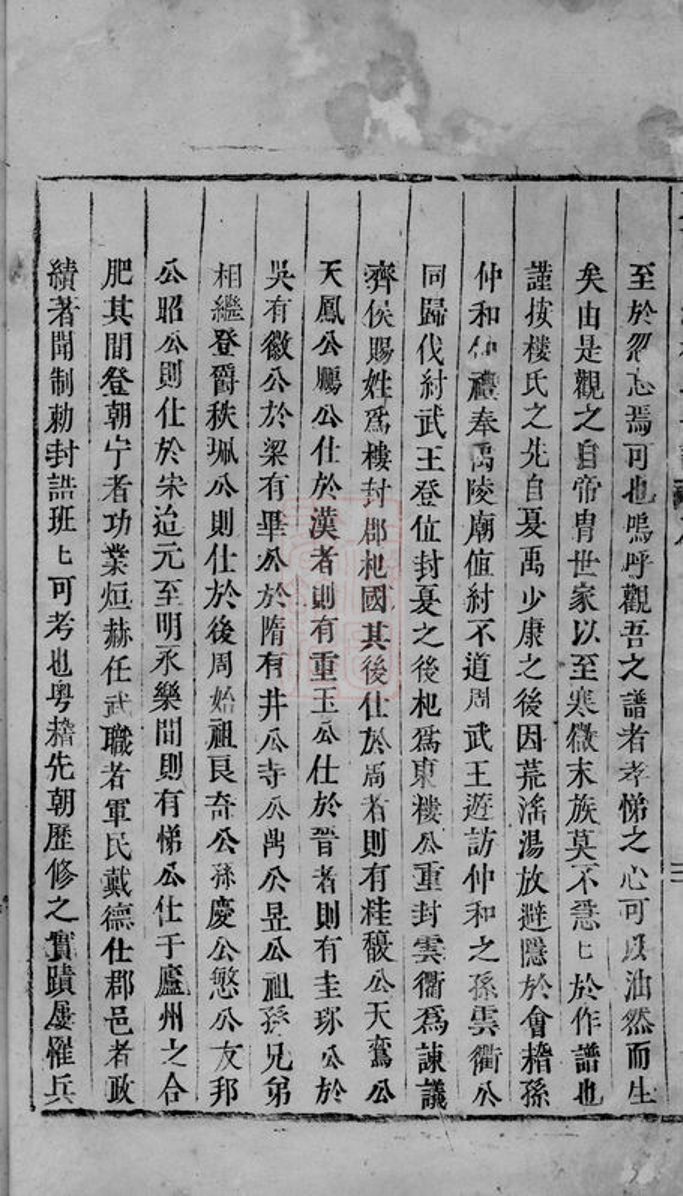 至於忽忘焉可也嗚呼觀吾之譜者孝悌之心可以油然而生
矣由是觀之自帝胄世家以至寒微末族莫不惓匕於作譜也
謹按樓氏之先自夏禹少康之後因荒滛湯放避隱於會稽孫
仲和仲禮奉禹陵廟值紂不道周武王遊訪仲和之孫雲衢公
同歸伐紂武王登位封夏之後杞為東樓公重封雲衢為諫議
齊侯賜姓為樓封郡杞國其後仕於周者則有桂馥公天鸞公
天鳳公鵬公仕於漢者則有重玉公仕於晉者則有圭琢公於
吳有徽公於梁有畢公於隋有井公寺公尚公昱公祖孫兄弟
相繼登爵秩珮公則仕於後周始祖良奇公孫慶公慜公友邦
公昭公則仕於宋迨元至明永樂間則有悌公仕于廬州之合
肥其間登朝宁者功業烜赫任武職者軍民戴德仕郡邑者政
績著聞制勅封誥班匕可考也粵稽先朝歷修之實蹟屢罹兵